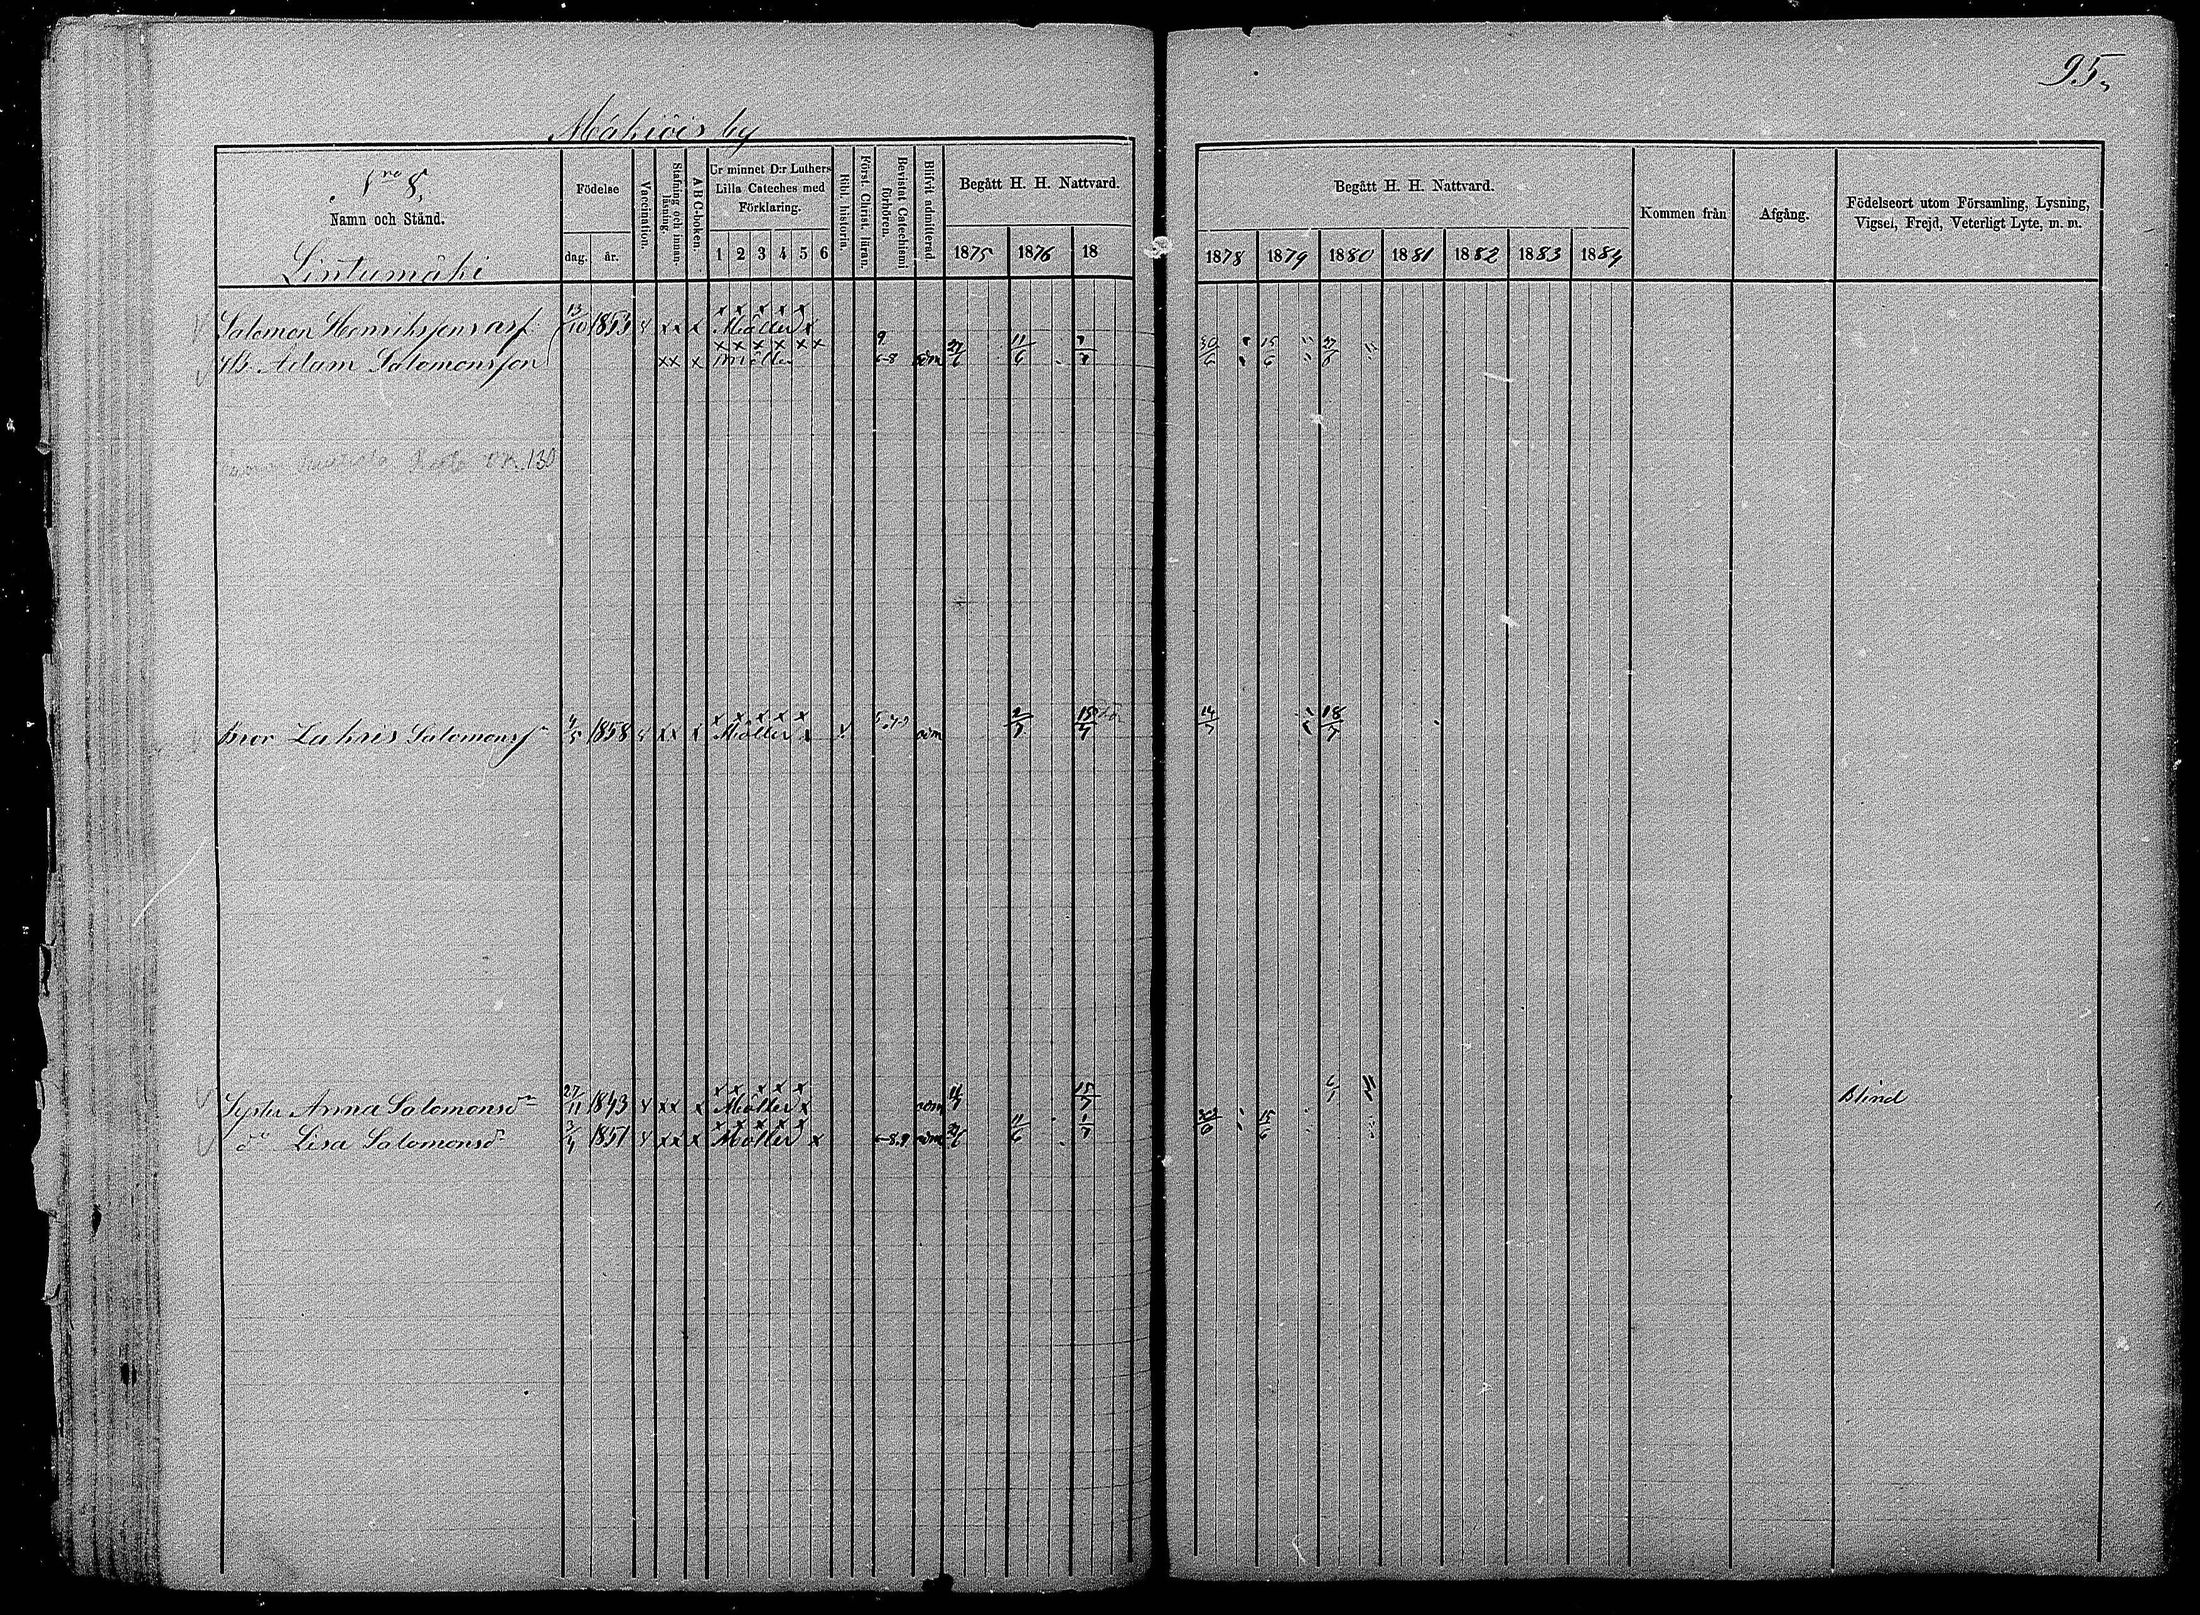 95.
Mähiöis by
Nro 8.
Namn och Stånd.
Lintumäki
Födelse
dag. år.
Vaccination.
Stafning och innan-läsning.
A B C-boken.
Ur minnet D:r Luthers Lilla Cateches med Förklaring.
1 2 3 4 5 6
Bibl. historia.
Först. Christ. läran.
Bevistat Catechismi förhören.
Blifvit admitterad
Begått H. H. Nattvard.
1875 1876 18
Begått H. H. Nattvard.
1878 1879 1880 1881 1882 1883 1884
Kommen från
Afgång.
Födelseort utom Församling, Lysning, Vigsel, Frejd, Veterligt Lyte, m. m.
Salomon Henrikssons arf. 13/10 1853 x xx x x x x x x Mölter x
Hb. Adam Salomonsson xx x x x x x x x Mölter 9 6-8 adm 27/6 11/6 30/6 15/6 27/6
130
Bror Zakris Salomonss 4/5 1858 x xx x x x x x x Mölter x x adm 2/7 15/7 14/7 18/7
Syster Anna Salomonsdr 27/11 1843 x xx x x x x x x Mölter x adm 15/7 Blind
do Lisa Salomonsdr 3/4 1851 x xx x x x x x x Mölter x 6-8.9 adm 27/6 11/6 1/7 30/6 15/6